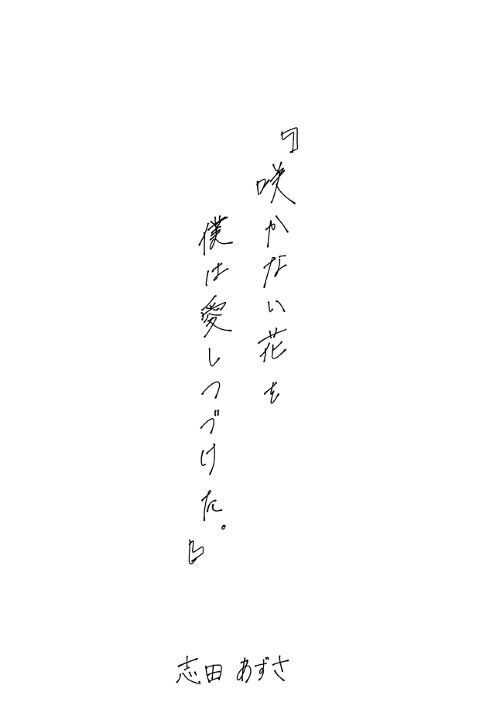 『咲かない花を
僕は愛しつづけた。』
志田 あずさ